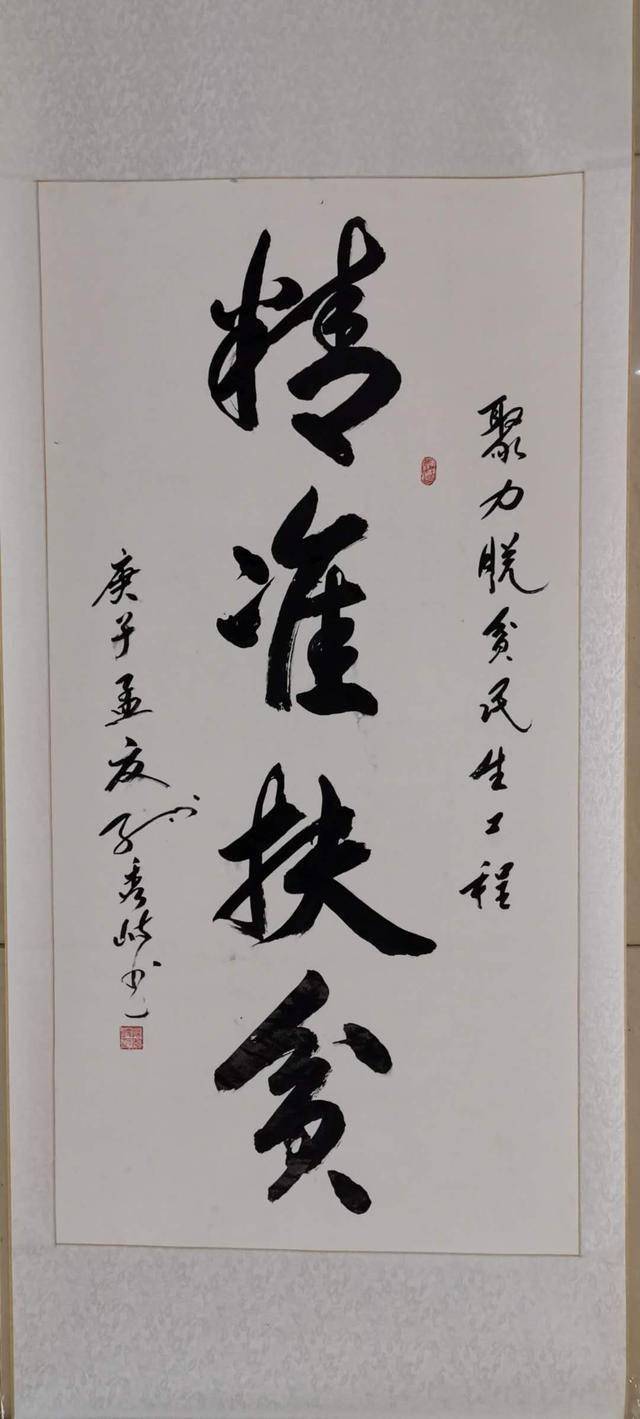 聚力脱贫民生工程
精准扶贫
庚子孟夏孙秀岐书